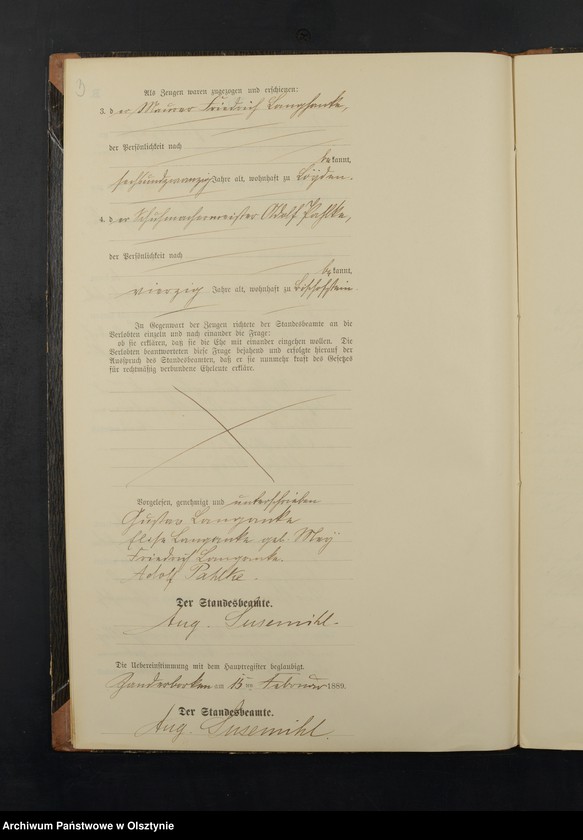 3
Als Zeugen waren zugezogen und erschienen:
3. der Maurer Friedrich Langhanke,
der Persönlichkeit nach
bekannt,
sechsundzwanzig Jahre alt, wohnhaft zu Loyden.
4. der Schuhmachermeister Adolf Pahlke,
der Persönlichkeit nach
bekannt,
vierzig Jahre alt, wohnhaft zu Bischofstein.
In Gegenwart der Zeugen richtete der Standesbeamte an die
Verlobten einzeln und nach einander die Frage:
ob sie erklären, daß sie die Ehe mit einander eingehen wollen. Die
Verlobten beantworteten diese Frage bejahend und erfolgte hierauf der
Ausspruch des Standesbeamten, daß er sie nunmehr kraft des Gesetzes
für rechtmäßig verbundene Eheleute erkläre.
Vorgelesen, genehmigt und unterschrieben
Gustav Langanke
Elise Langanke geb. Mey
Friedrich Langanke.
Adolf Pahlke.
Der Standesbeamte.
Aug. Susemihl.
Die Uebereinstimmung mit dem Hauptregister beglaubigt.
am 15 ten Februar 1889.
Der Standesbeamte.
Aug. Susemihl.
Archiwum Państwowe w Olsztynie